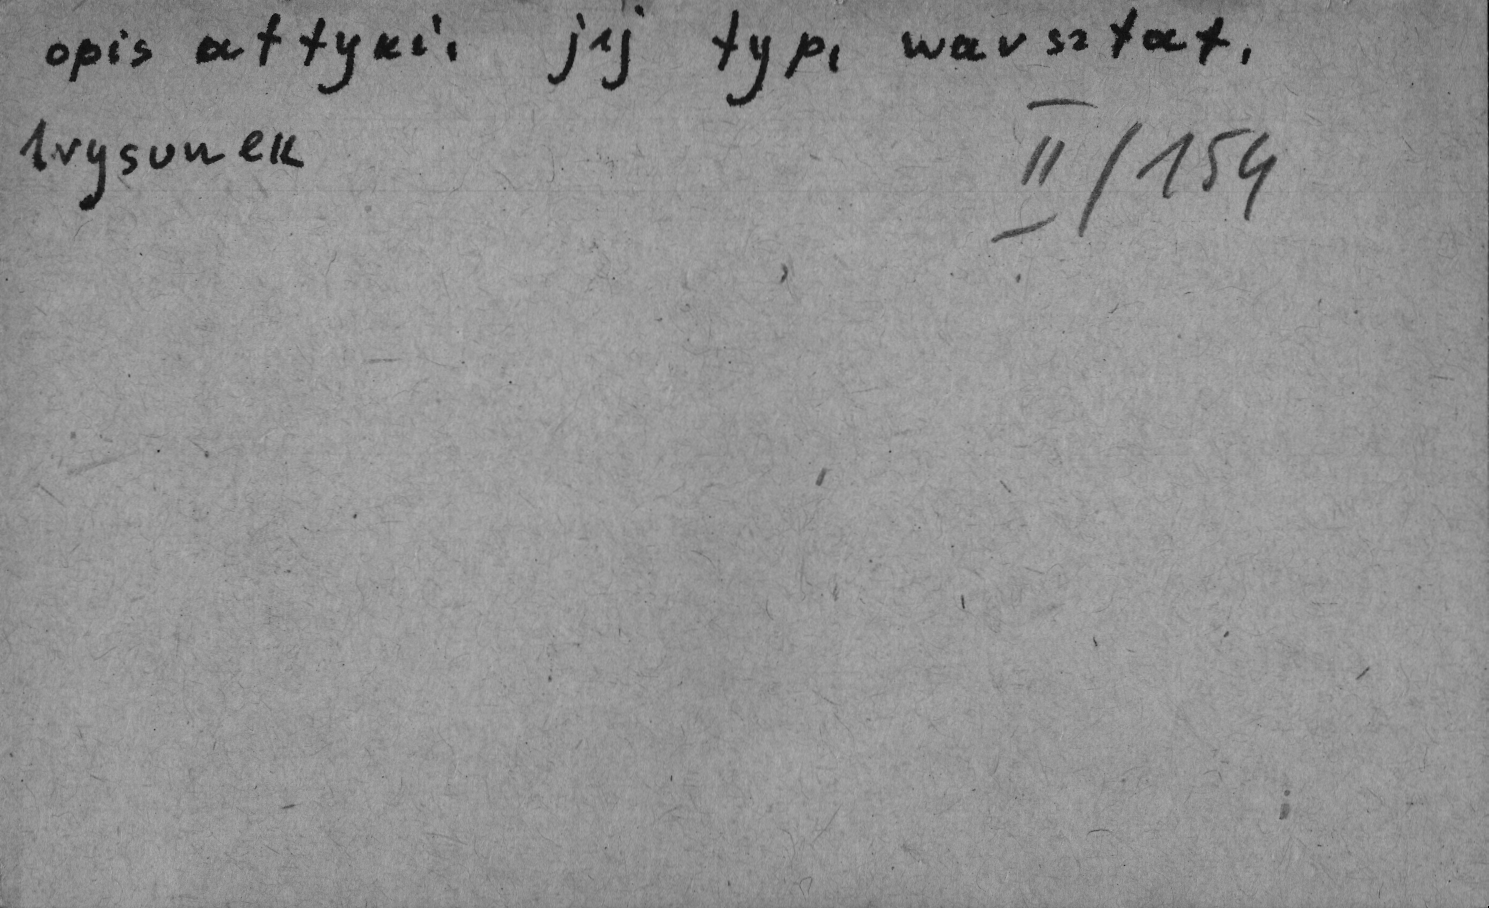 opis attyki, jij typ, warsztat,
1 rysunek
II/154